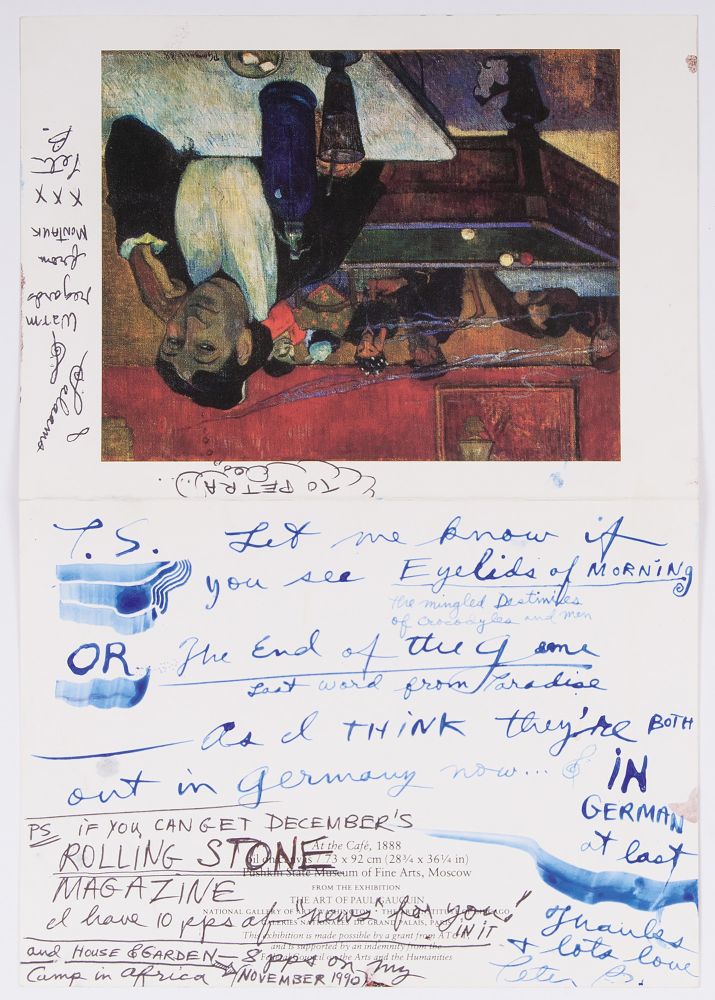 Salaams &
Warm
regards
from
MONTAUK
XXX
Peter
B.
TO PETRA
T.S. Let me know if
you see Eyelids of MORNiNg
the mingled Destinies
of Crocodyles and men
OR The End of the Game
Last word from Paradise
As I THiNK they're BOTH
out in Germany now... &
iN
GERMAN
at last
PS IF YOU CAN GET DECEMBER'S
ROLLING STONE
MAGAZINE
I have 10 pps of "new" for you!
IN IT
and HOUSE & GARDEN — 8 pps on my
Camp in Africa NOVEMBER 1990
Thanks
& lots love
Peter B.
At the Café, 1888
oil on canvas / 73 x 92 cm (28¾ x 36¼ in)
Pushkin State Museum of Fine Arts, Moscow
FROM THE EXHIBITION
THE ART OF PAUL GAUGUIN
NATIONAL GALLERY OF ART, WASHINGTON • THE ART INSTITUTE OF CHICAGO
GALERIES NATIONALES DU GRAND PALAIS, PARIS
This exhibition is made possible by a grant from AT&T
and is supported by an indemnity from the
Federal Council on the Arts and the Humanities